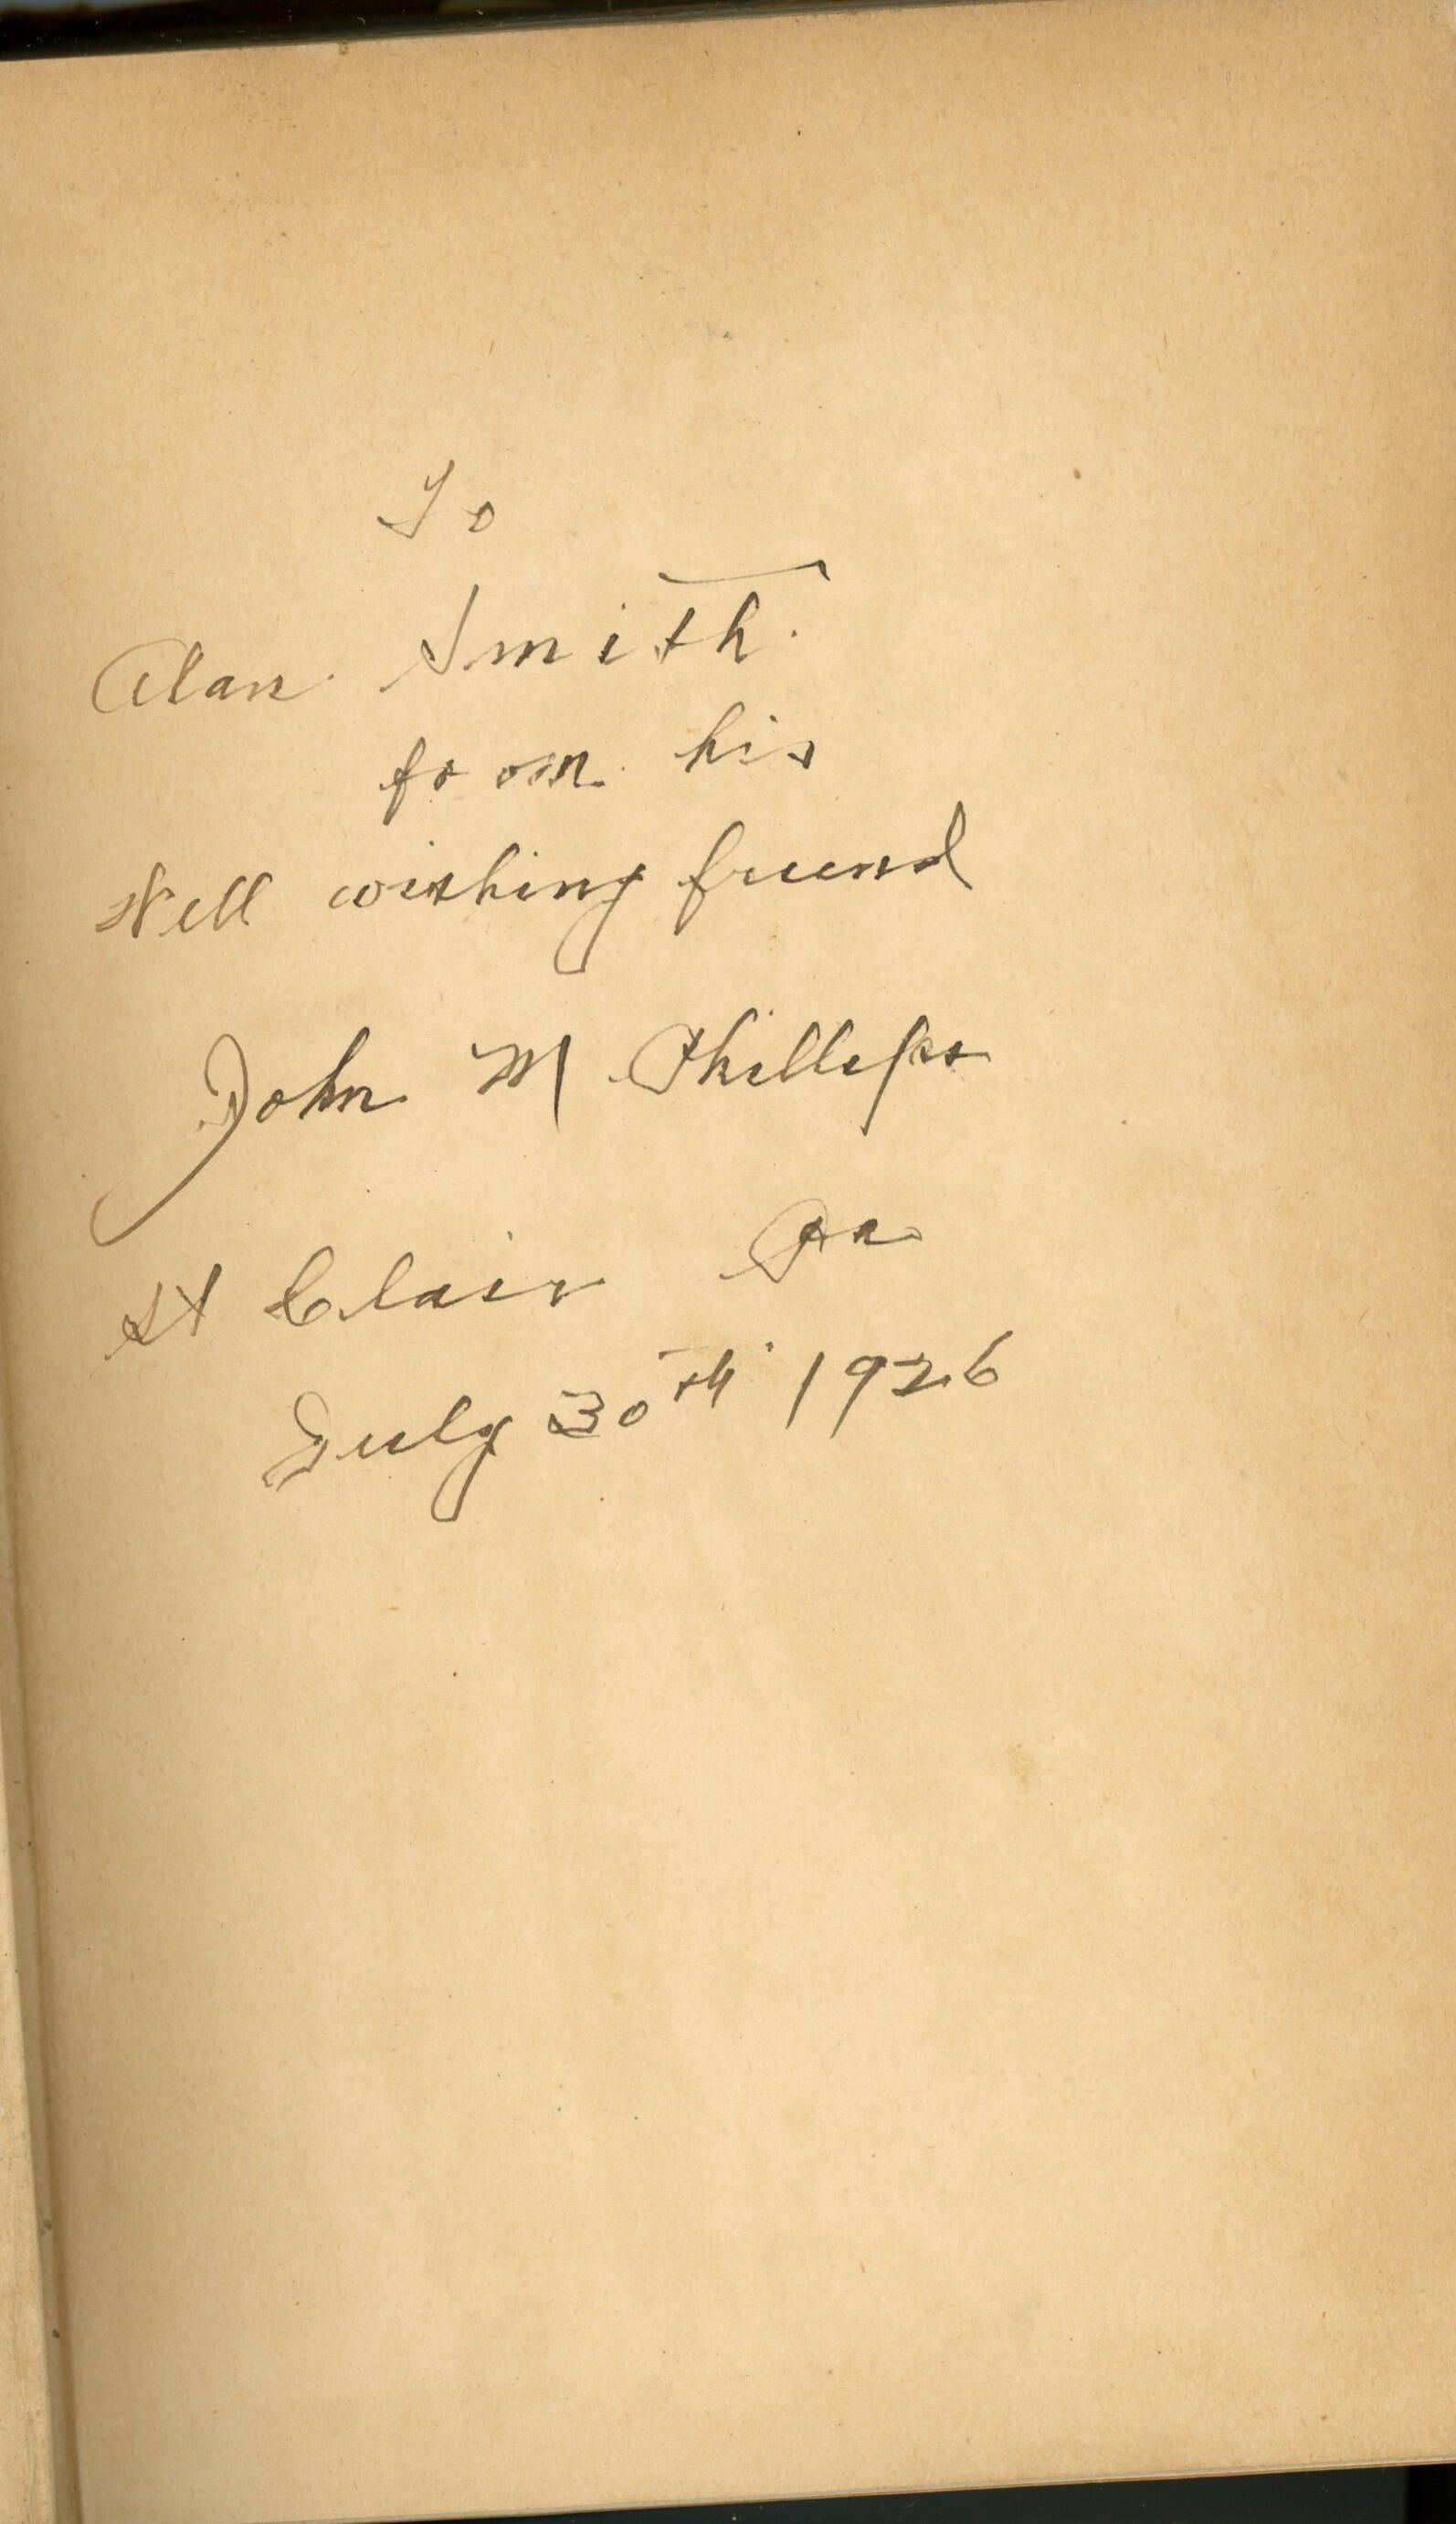 To
Alan Smith.
from his
Well wishing friend
John M Phillips
St Clair Pa
July 30th 1926